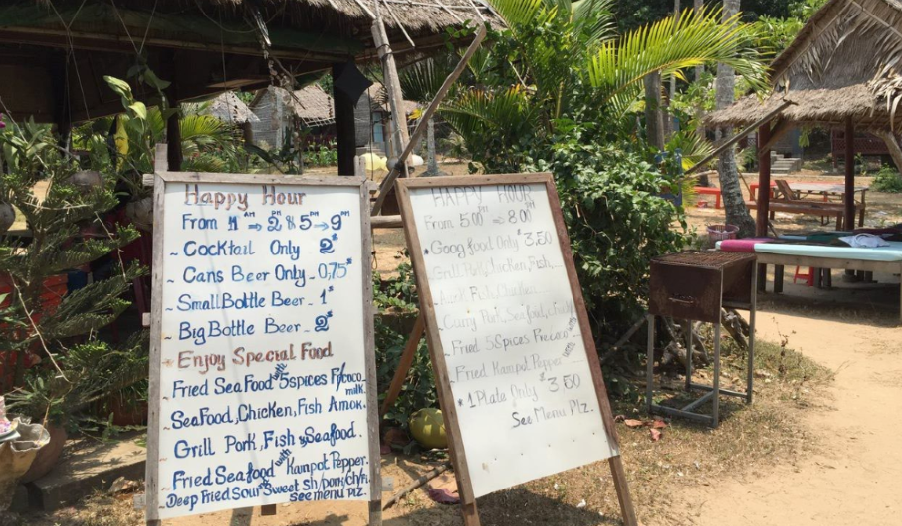 Happy Hour
From 11 AM → 2 PM & 5 PM → 9 PM
~ Cocktail Only 2$
~ Cans Beer Only - 0,75$
~ Small Bottle Beer - 1$
~ Big Bottle Beer - 2$
~ Enjoy Special Food
- Fried SeaFood 5spices F/coco milk.
- SeaFood, Chicken, Fish Amok.
- Grill Pork, Fish Seafood.
- Fried Seafood with Kampot Pepper.
- Deep Fried Sour Sweet sh/pork/ch/fi.
see menu plz.
HAPPY HOUR
From 5:00 PM → 8:00 PM
Food Only $ 3,50
- Grill Pork, Chicken, Fish,
Fish, Chicken
- Curry Pork, Seafood,
- Fried 5Spices
- Fried Kampot Pepper
• 1 Plate Only $ 3.50
See Menu Plz.